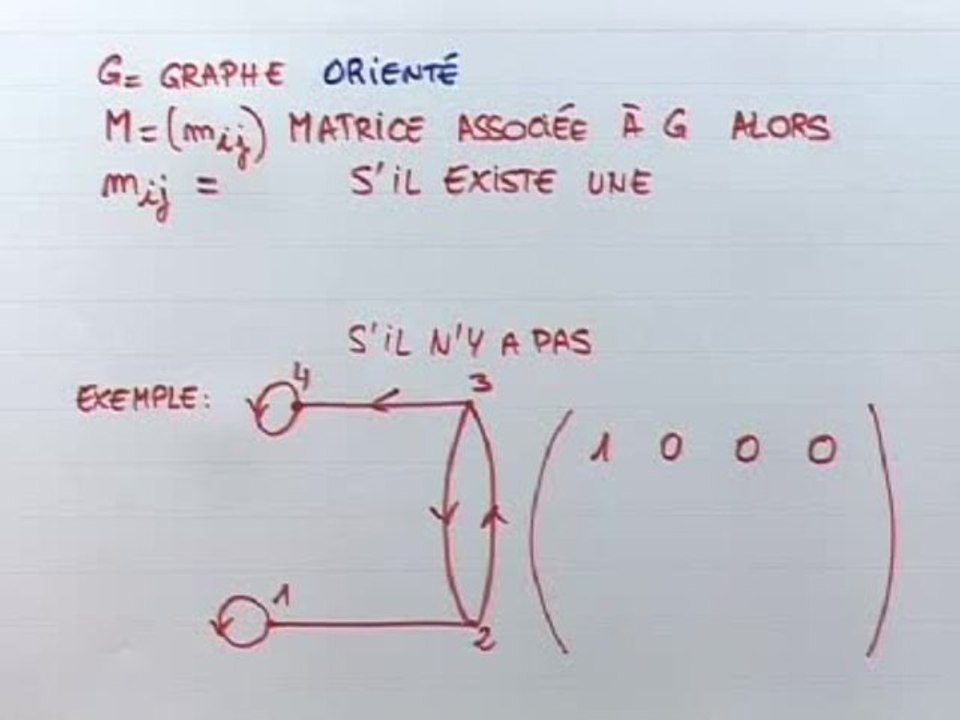 G= GRAPHE ORIENTÉ
M=(mij) MATRICE ASSOCIÉE À G ALORS
mij = S'IL EXISTE UNE
S'IL N'Y A PAS
EXEMPLE:
4
3
1 0 0 0
1
2